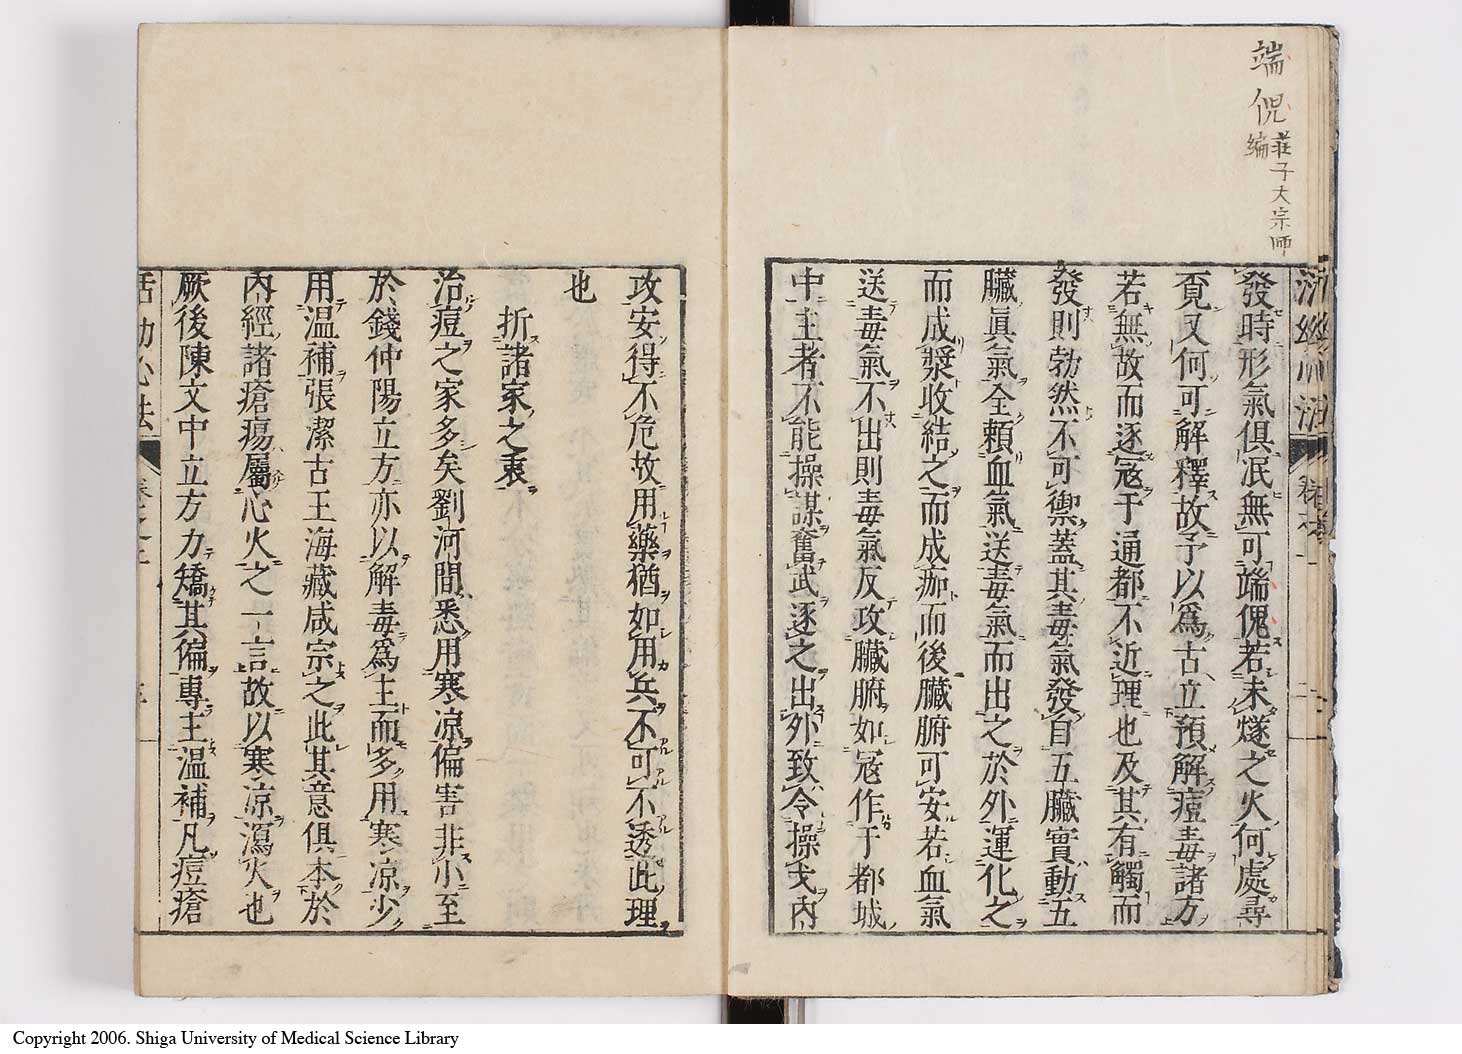 端倪
莊子大宗師
編
發時形氣俱泯無可端傀若未燧之火何處尋
覔又何可解釋故予以爲古立預解痘毒諸方
若無故而逐寇于通都不近理也及其有觸而
發則勃然不可禦蓋其毒氣發自五臟實動五
臟眞氣全賴血氣送毒氣而出之於外運化之
而成漿收結之而成痂而後臟腑可安若血氣
送毒氣不出則毒氣反攻臟腑如寇作于都城
中主者不能操謀奮武逐之出外致令操戈內
攻安得不危故用藥猶如用兵不可不透此理
也
折諸家之衷
治痘之家多矣劉河間悉用寒凉偏害非小至
於錢仲陽立方亦以解毒爲主而多用寒凉少
用温補張潔古王海藏咸宗之此其意俱本於
內經諸瘡瘍屬心火之一言故以寒凉瀉火也
厥後陳文中立方力矯其偏專主温補凡痘瘡
活幼心法
Copyright 2006. Shiga University of Medical Science Library